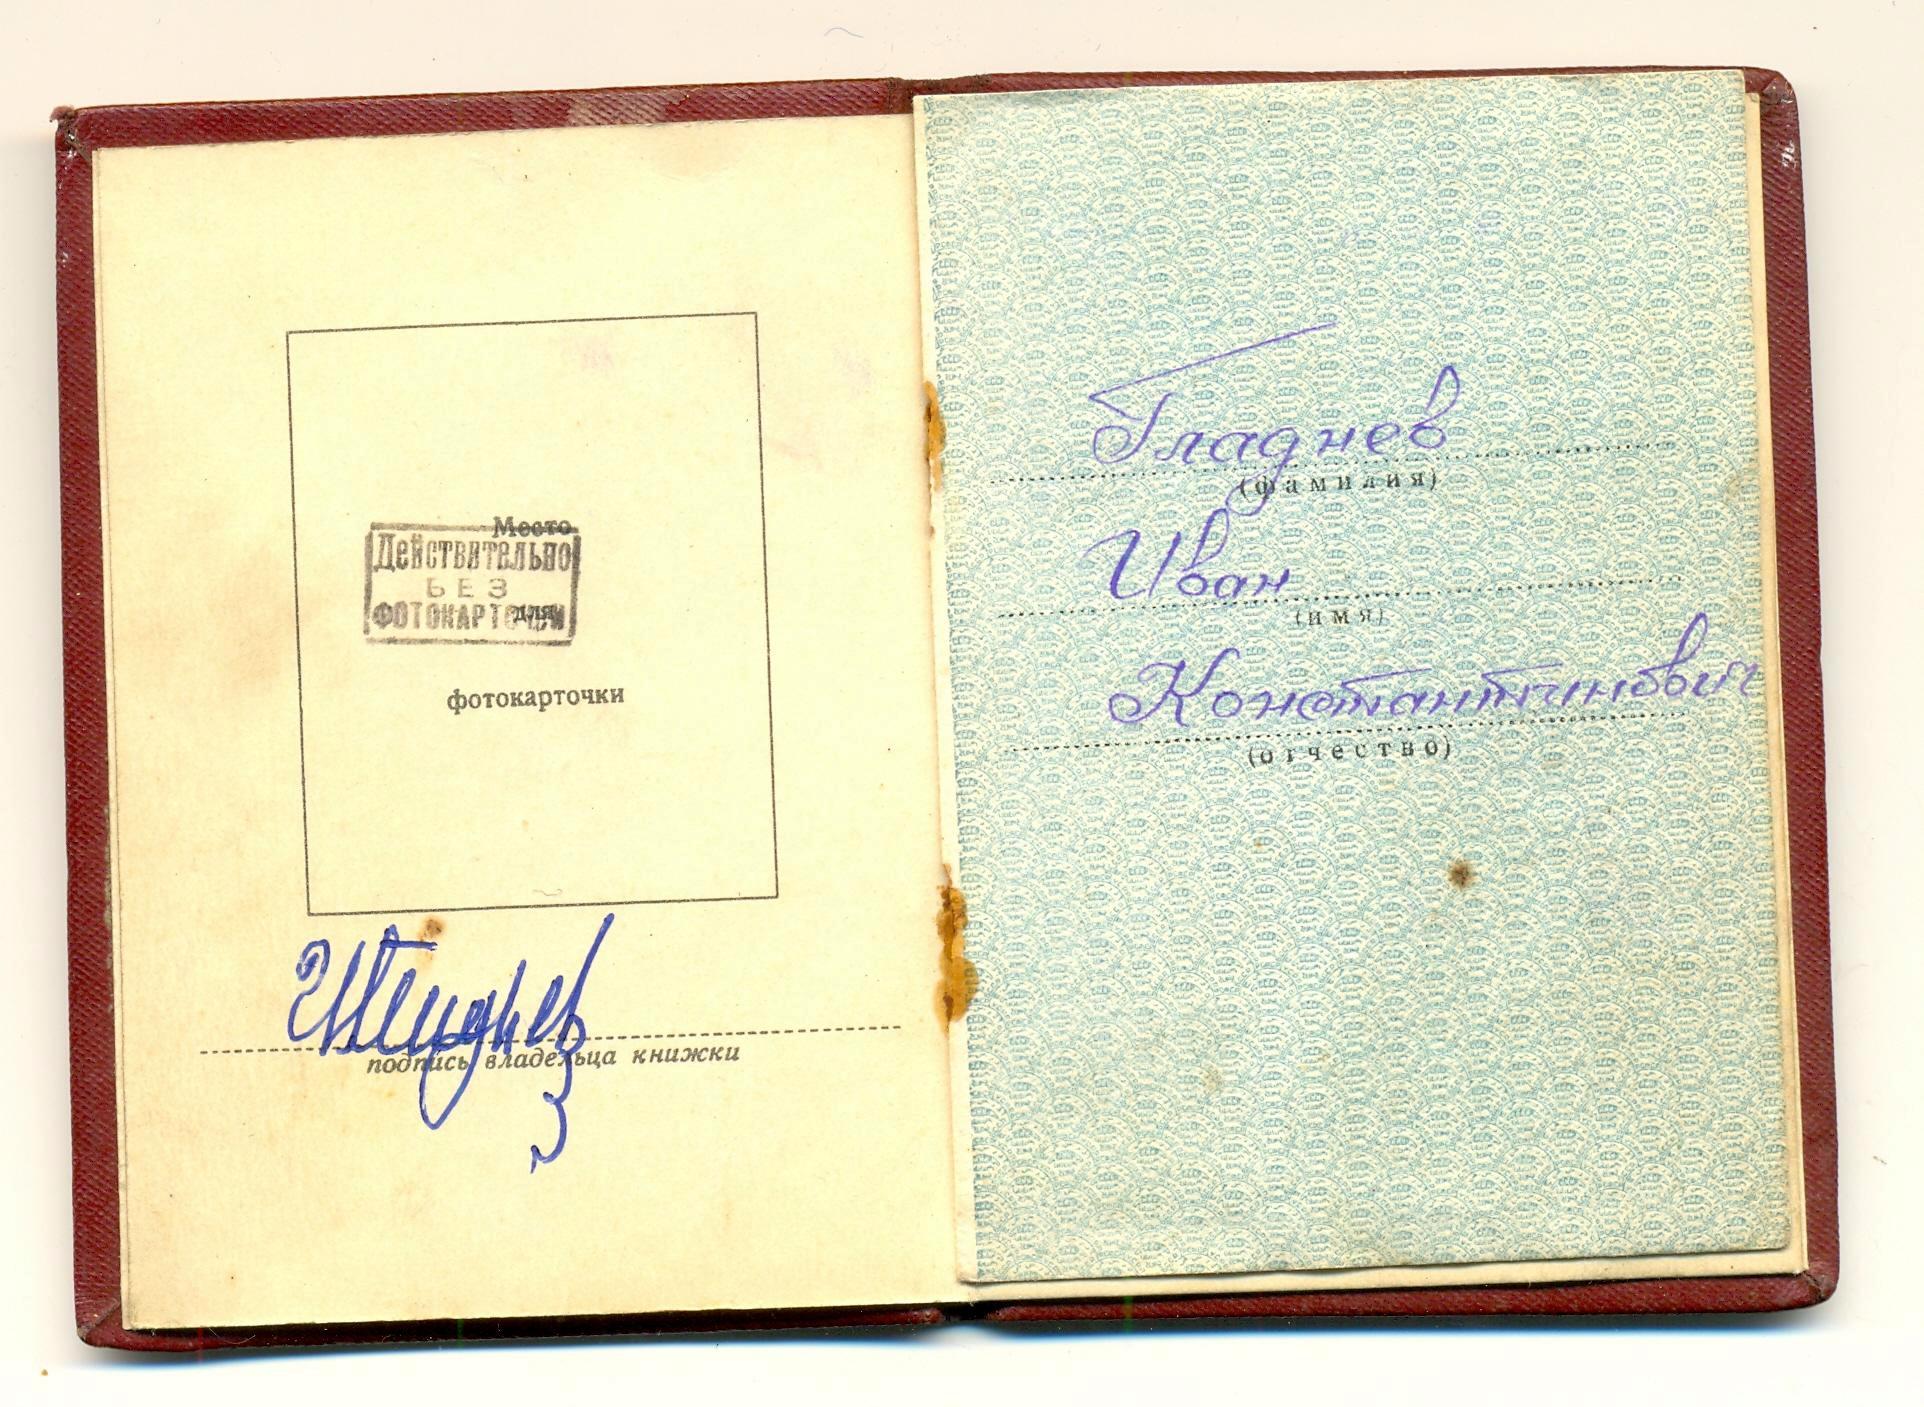 Место
Действительно
БЕЗ
ФОТОКАРТОЧКИ
для
фотокарточки
подпись владельца книжки
Гладнев
(фамилия)
Иван
(имя)
Константинович
(отчество)